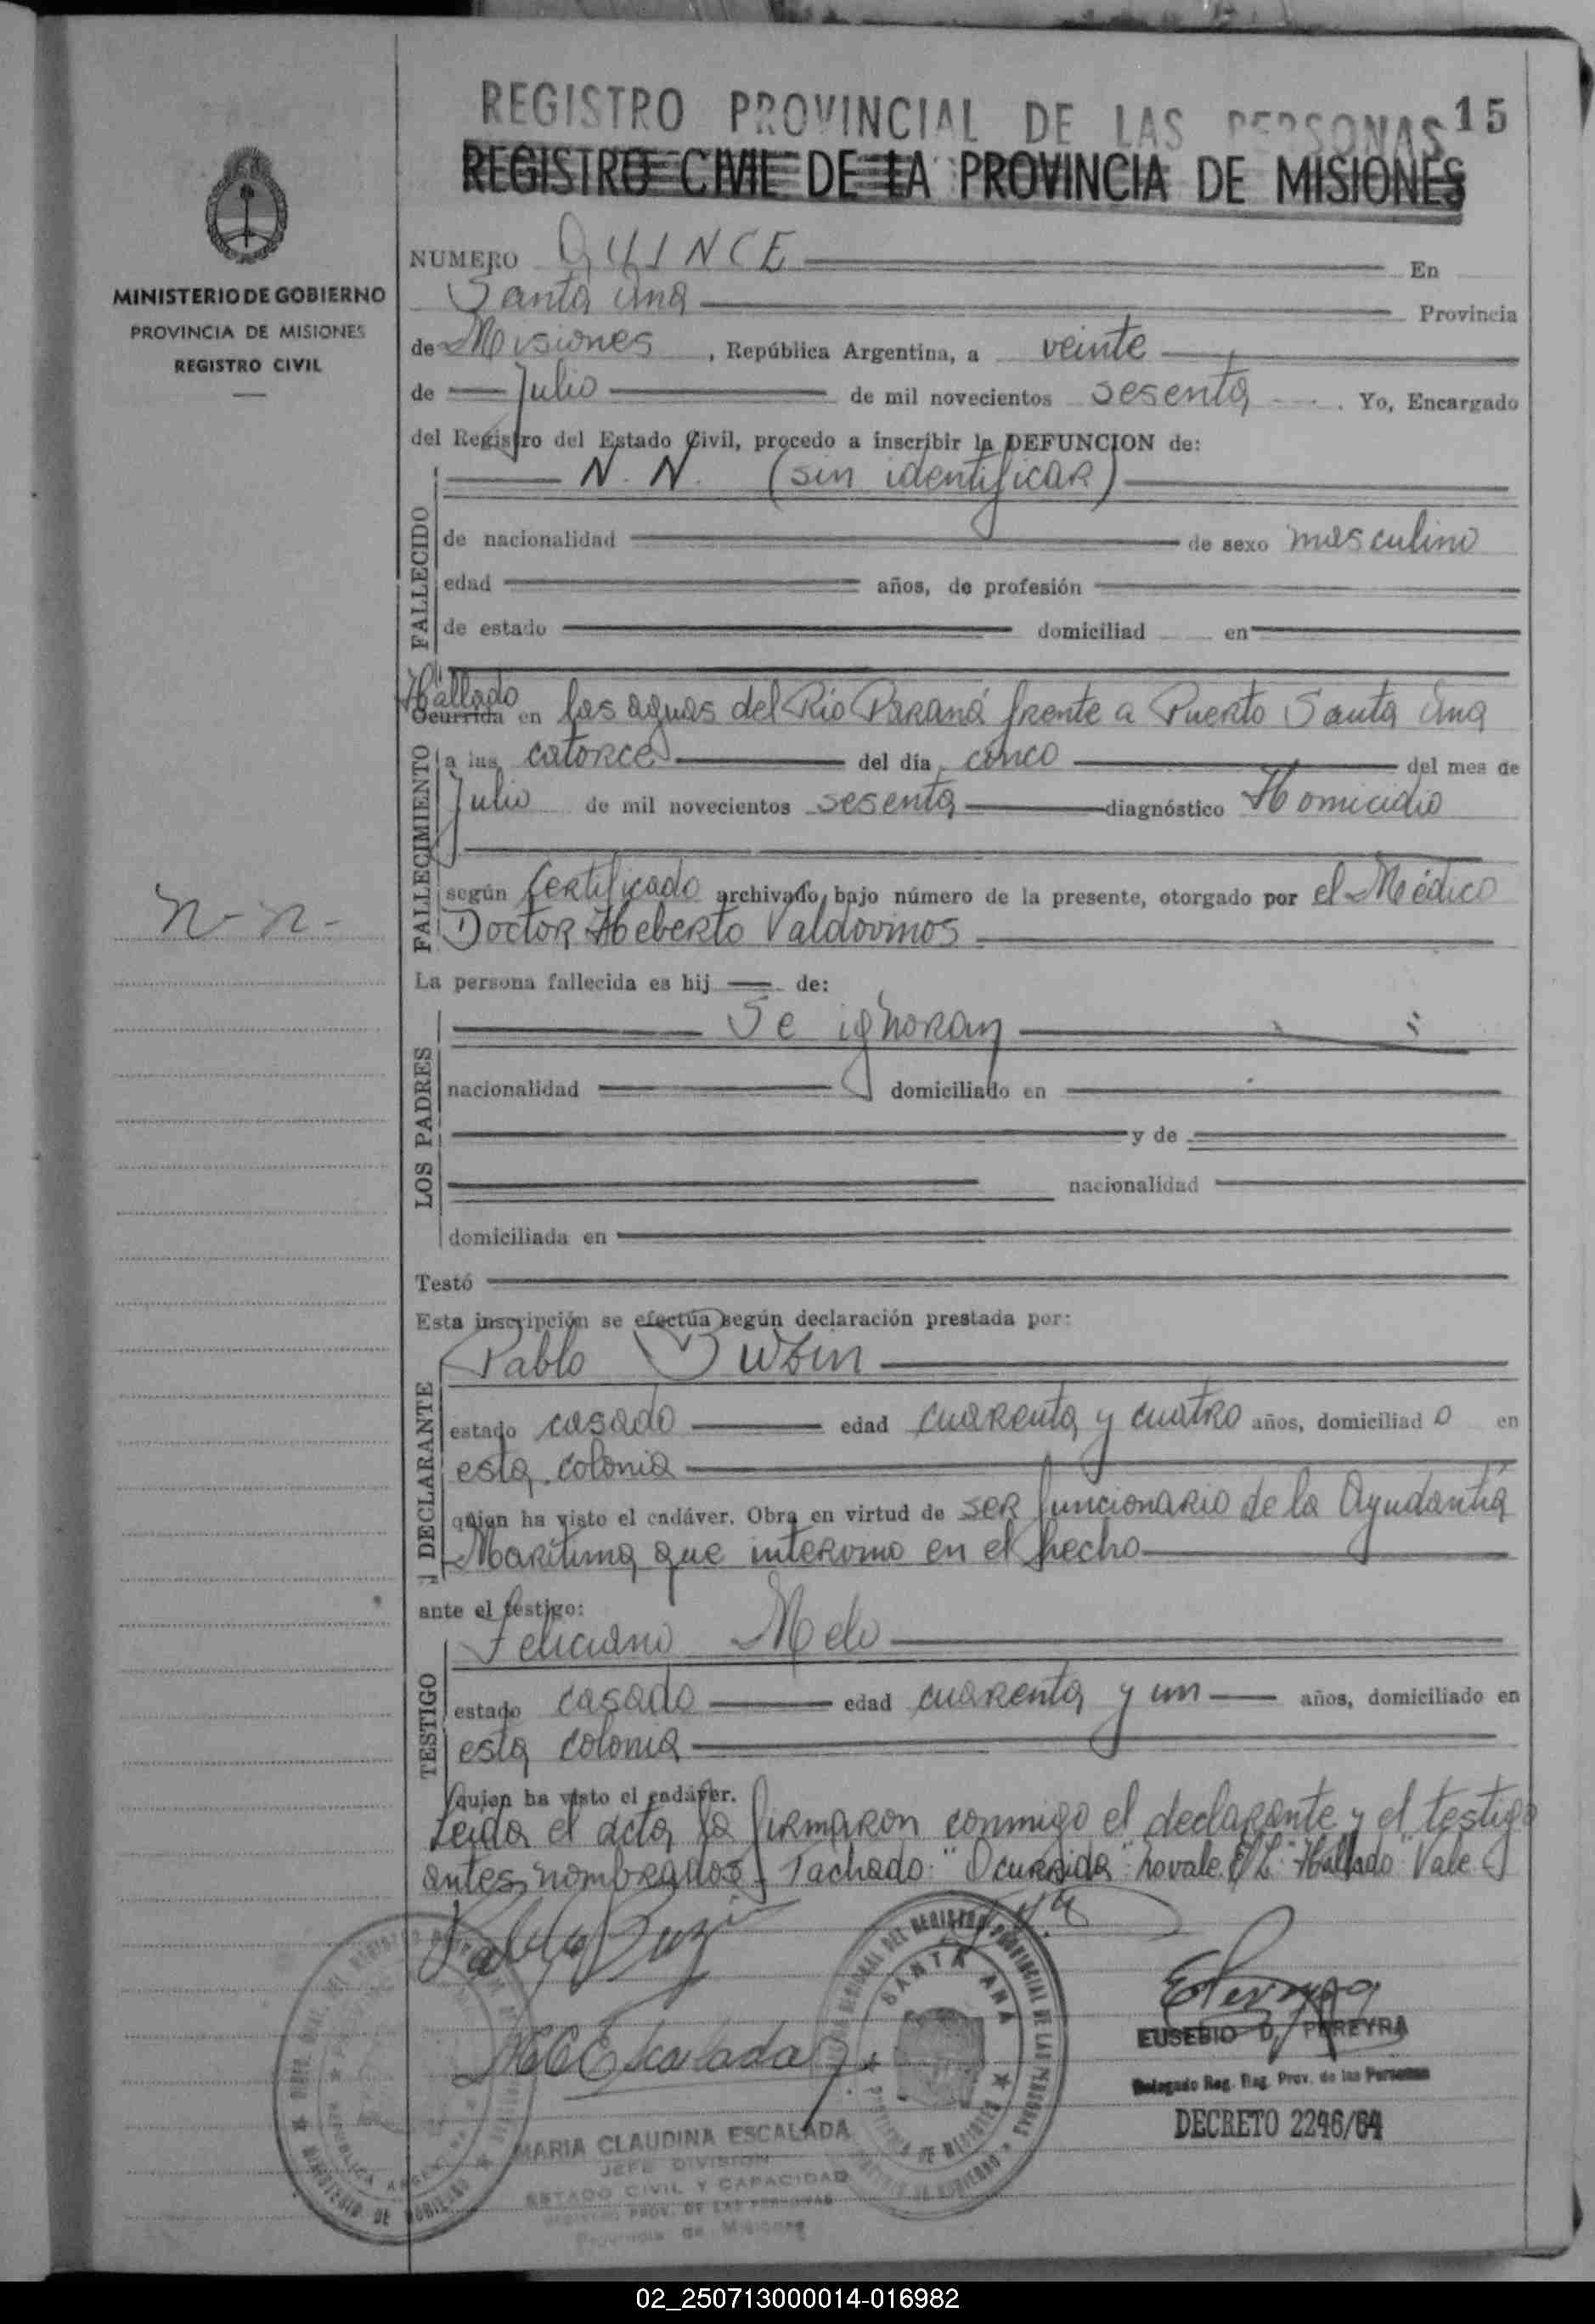 REGISTRO PROVINCIAL DE LAS PERSONAS 15
REGISTRO CIVIL DE LA PROVINCIA DE MISIONES
MINISTERIO DE GOBIERNO
PROVINCIA DE MISIONES
REGISTRO CIVIL
NUMERO QUINCE En
Santa Ana Provincia
de Misiones, República Argentina, a veinte
de Julio de mil novecientos sesenta. Yo, Encargado
del Registro del Estado Civil, procedo a inscribir la DEFUNCION de:
FALLECIDO
N. N. (sin identificar)
de nacionalidad de sexo masculino
edad años, de profesión
de estado domiciliad en
Hallado
Ocurrida en las aguas del Rio Paraná frente a Puerto Santa Ana
FALLECIMIENTO
a las catorce del día cinco del mes de
Julio de mil novecientos sesenta diagnóstico Homicidio
según certificado archivado bajo número de la presente, otorgado por el Médico
Doctor Heberto Valdovinos
n-n-
La persona fallecida es hij de:
LOS PADRES
Se ignoran
nacionalidad domiciliado en
y de
nacionalidad
domiciliada en
Testó
Esta inscripción se efectúa según declaración prestada por:
DECLARANTE
Pablo
estado casado edad cuarenta y cuatro años, domiciliado en
esta colonia
quien ha visto el cadáver. Obra en virtud de ser funcionario de la Ayudantía
Marítima que intervino en el hecho
ante el testigo:
TESTIGO
Feliciano Melo
estado casado edad cuarenta y un años, domiciliado en
esta colonia
quien ha visto el cadáver.
Leída el acta, la firmaron conmigo el declarante y el testigo
antes nombrados. Tachado: "Ocurrida": no vale. E/L: "Hallado" Vale
SANTA ANA
EUSEBIO D. PEREYRA
Delegado Reg. Reg. Prov. de las Personas
DECRETO 2246/64
MARIA CLAUDINA ESCALADA
JEFE DIVISION
ESTADO CIVIL Y CAPACIDAD
REGISTRO PROV. DE LAS PERSONAS
Provincia de Misiones
02_250713000014-016982